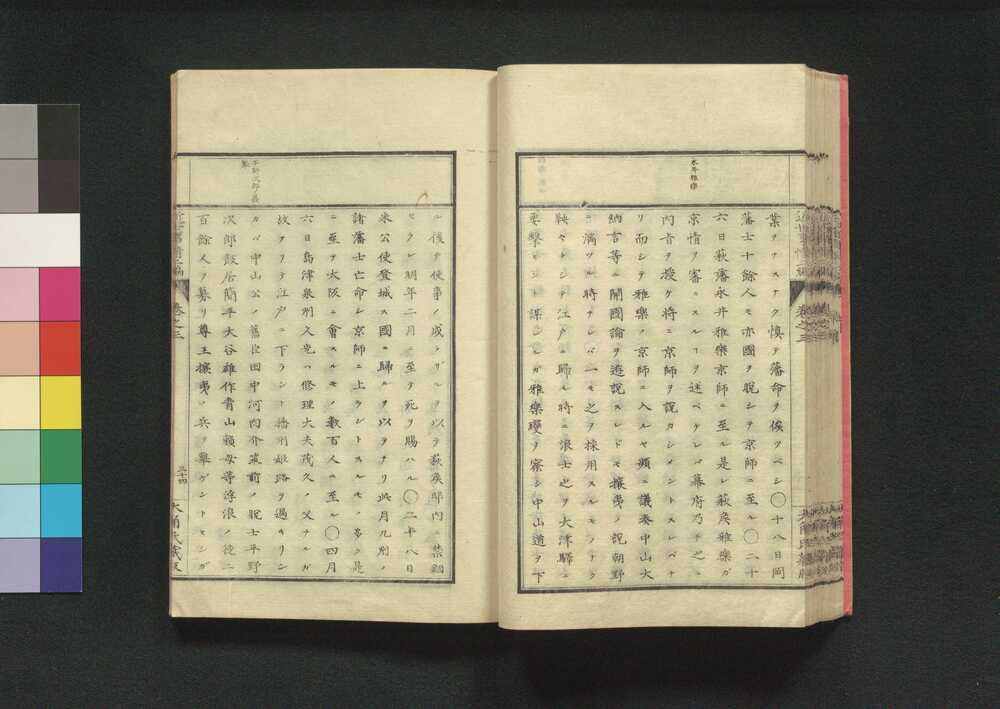 永井雅樂
業ヲスナク愼テ藩命ヲ俟ツベシ〇十八日岡
藩士十餘人モ亦國ヲ脱シテ京師ニ至ル〇二十
六日萩藩永井雅樂京師ニ至ル是レ萩侯雅樂ガ
京情ヲ審ニスルヿヲ述ベケレバ幕府乃チ之ニ
内旨ヲ授ケ將ニ京師ヲ説カシメントスレベナ
リ而シテ雅樂ノ京師ニ入ルヤ頻ニ議奏中山大
納言等ニ開國論ヲ遊説スレドモ攘夷ノ説朝野
ニ滿ツル時ナレバ一モ之ヲ採用スルモノナク
鞅々トシテ江戸ニ歸ル時ニ浪士之ヲ大津驛ニ
要撃セント謀シルガ雅樂璎ヲ察シ中山道ヲ下
平野次郎ノ義擧
ル後チ使事ノ成ラザルヲ以テ萩侯邸内ニ禁錮
セラレ明年二月ニ至テ死ヲ賜ハル〇二十八日
米公使登城ス國ニ歸ルヲ以テナリ此月九州ノ
諸藩士亡命シ京師ニ上ラントスルモノ多ク是
ニ至テ大阪ニ會スルモノ數百人ニ至ル〇四月
六日島津泉州久光ハ修理大夫茂久ノ父ナル
故ヲヲテ江戸ニ下ラント播州姫路ヲ過キリシ
カバ中山公ノ舊臣田中河内介筑前ノ脱士平野
次郎飯居簡平大谷雄作青山頼母等浮浪ノ徒二
百餘人ヲ募リ尊王攘夷ノ兵ヲ擧ゲントセシガ
近世事情二編
卷之三
三十四
大角氏藏版